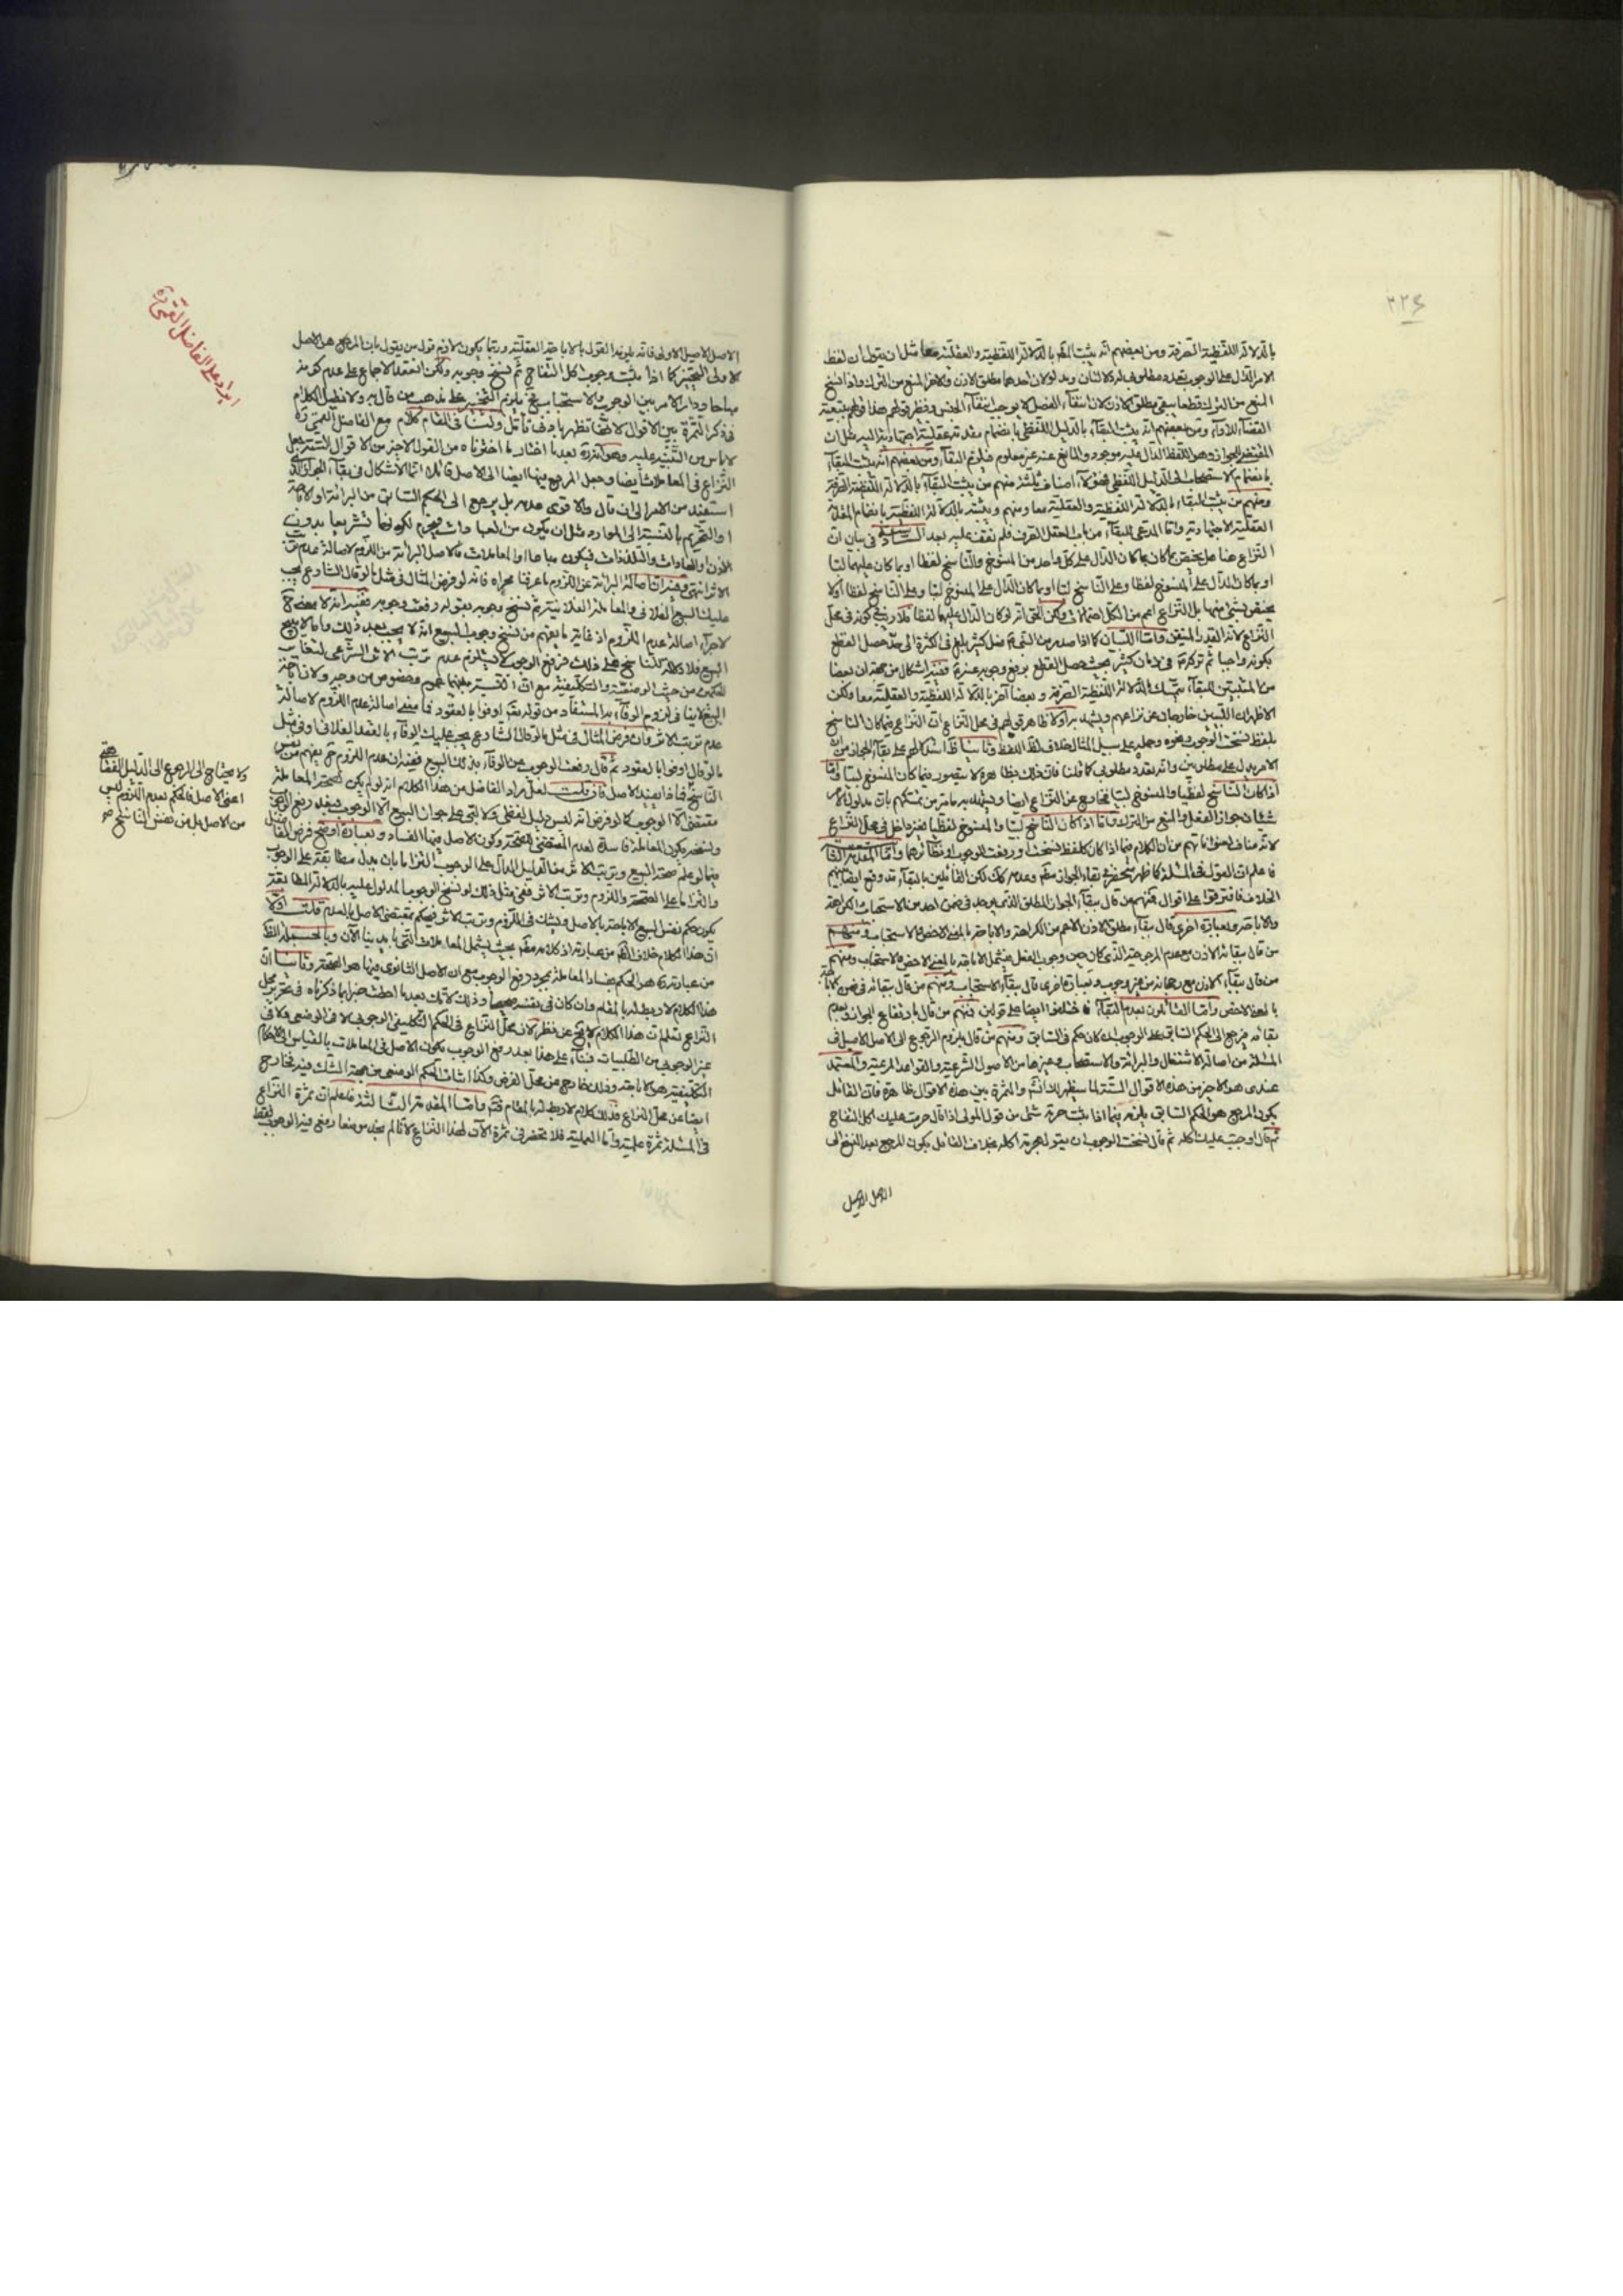 ٢٢٤
بالدلالة اللفظية الصرفة ومن بعضهم انه يثبت البقاء بالدلالة اللفظية والعقلية معا مثل ان يقول ان لفظ
الامر الدال على الوجوب
المنع من الترك فيبقى مطلق الاذن لان انتفاء الفصل لا يوجب انتفاء الجنس
ومن بعضهم انه يثبت البقاء بالدليل اللفظى بانضمام مقدمة عقلية
المقتضى للجواز وهو اللفظ الدال عليه موجود والمانع عنه غير معلوم فيلزم البقاء ومن بعضهم انه يثبت البقاء
بانضمام الاستصحاب الى الدليل اللفظى فهؤلاء اصناف ثلثة منهم من يثبت البقاء بالدلالة اللفظية الصرفة
ومنهم من يثبت البقاء بالدلالة اللفظية والعقلية معا ومنهم من يثبته بالدلالة اللفظية بانضمام المقدمة
العقلية الاجتهادية واما المدعى للبقاء من باب العقل الصرف فلم نقف عليه بعد السادسة فى بيان ان
النزاع هنا هل يختص بما كان الدال على كل واحد من المنسوخ والناسخ لفظا او بما كان عليهما لبّا
او بما كان الدال على المنسوخ لفظا وعلى الناسخ لبّا او بما كان الدال على المنسوخ لبّا وعلى الناسخ لفظا او لا
يختص بشئ منها بل النزاع اعم من الكل احتمالات ولكن الحق انه لو كان الدال عليهما لفظا فلا ريب فى كونه فى محل
النزاع لانه القدر المتيقن واما اللبّيان كما اذا صدر من النبى فعل كثير بلغ فى الكثرة الى حد حصل القطع
بكونه واجبا ثم تركه فى زمان كثير بحيث حصل القطع برفع وجوبه عنه ففيه اشكال من جهة ان بعضا
من المثبتين للبقاء يتمسك بالدلالة اللفظية الصرفة وبعضا آخر بالدلالة اللفظية والعقلية معا ولكن
الاظهر ان اللبيين خارجان عن نزاعهم ويشهد به اولا ظاهر قولهم فى محل النزاع ان النزاع فيما كان الناسخ
بلفظ نسخت الوجوب ونحوه وحمله على سبيل المثال خلاف ظاهر اللفظ وثانيا استدلالهم على بقاء الجواز من ان
الامر يدل على مطلوبين
اذا كان الناسخ لفظيا والمنسوخ لبّيا فخارج عن النزاع ايضا ويشهد به ما مر من تمسكهم بان مدلول الامر
شيئان جواز الفعل والمنع من الترك واما اذا كان الناسخ لبّيا والمنسوخ لفظيا فهو داخل فى محل النزاع
لانه مناف لعنواناتهم من ان الكلام فيما اذا كان كلفظ نسخت او رفعت الوجوب او نظائرهما واما المقدمة الثانية
فاعلم ان القول فى المسئلة كما ظهر منحصر فى بقاء الجواز وعدمه لكن القائلين بالبقاء قد وقع ايضا بينهم
الخلاف فافترقوا على اقوال فمنهم من قال ببقاء الجواز المطلق الذى يوجد فى ضمن احد من الاستحباب والكراهة
والاباحة وبعبارة اخرى قال ببقاء مطلق الاذن الاعم من الكراهة والاباحة بالمعنى الاخص والاستحباب ومنهم
من قال ببقاء الاذن مع عدم المرجوحية الذى كان حين وجوب الفعل فيشمل الاباحة بالمعنى الاخص والاستحباب ومنهم
من قال ببقاء الاذن مع رجحانه من غير وجوب وبعبارة اخرى قال ببقاء الاستحباب ومنهم من قال ببقائه فى ضمن الاباحة
بالمعنى الاخص واما القائلون بعدم البقاء فاختلفوا ايضا على قولين فمنهم من قال بارتفاع الجواز وعدم
بقائه فيرجع الى الحكم السابق على الوجوب اى ما كان حكم فى السابق ومنهم من قال بلزوم الرجوع الى الاصل الاصيل فى
المسئلة من اصالة الاشتغال والبرائة والاستصحاب وغيرها من الاصول الشرعية والقواعد المرعية والمعتمد
عندى هو الاخير من هذه الاقوال الستة لما سيظهر لك والثمرة بين هذه الاقوال ظاهرة فان القائل
بكون المرجع هو الحكم السابق يلزمه فيما اذا ثبت حرمة شئ من قول المولى اذا قال حرمت عليك اكل التفاح
ثم قال اوجبت عليك اكله ثم قال نسخت الوجوب ان يقول بحرمة اكله بخلاف القائل بكون المرجع بعد النسخ الى
الاصل الاصيل
ايراد على الفاضل القمى ره
الاصل الاصيل الاولى فانه يلزمه القول بالاباحة العقلية وربما يكون لازم قول من يقول بان المرجع هو الاصل
الاولى التخيير كما اذا ثبت وجوب اكل التفاح ثم نسخ وجوبه ولكن انعقد الاجماع على عدم كونه
مباحا ودار الامر بين الوجوب والاستحباب فح يلزم التخيير على مذهب من قال به ولا نطيل الكلام
فى ذكر الثمرة بين الاقوال لانها تظهر بادنى تأمل ولنا فى المقام كلام مع الفاضل القمى ره
لا باس من التنبيه عليه وهو انه ره بعد ما اختار ما اخترناه من القول الاخير من الاقوال الستة جعل
النزاع فى المعاملات ايضا وجعل المرجع فيها ايضا الى الاصل قائلا انما الاشكال فى بقاء الجواز الذى
استفيد من الامر الى ان قال والاقوى عدمه بل يرجع الى الحكم السابق من البرائة او الاباحة
او التحريم بالنسبة الى الموارد مثل ان يكون من العبادات فيحرم لكونها تشريعا بدون
الاذن والعادات والتلذذات فيكون مباحا او المعاملات فالاصل البرائة من اللزوم لاصالة عدم ترتب
الاثر انتهى وفيه ان اصالة البرائة عن اللزوم ما عرفنا مجراه فانه لو فرض المثال فى مثل ما لو قال الشارع يجب
عليك البيع الفلانى والمعاملة الفلانية ثم نسخ وجوبه بقوله رفعت وجوبه ففيه انه لا معنى ح
لاجراء اصالة عدم اللزوم اذ غاية ما يفهم من نسخ وجوب البيع انه لا يجب بعد ذلك واما لا يصح
البيع فلا دلالة للناسخ على ذلك فرفع الوجوب لا يستلزم عدم ترتب الاثر الشرعى لتغاير
الحكمين من حيث الوضعية والتكليفية مع ان النسبة بينهما عموم وخصوص من وجه
عدم ترتب الاثر وان فرض المثال فى مثل ما لو قال الشارع يجب عليك الوفاء بالعقد الفلانى او فى مثل
ما لو قال اوفوا بالعقود ثم قال رفعت الوجوب عن الوفاء بذلك البيع ففيه ان عدم اللزوم ح يفهم من نفس
الناسخ فما ذا يفيد الاصل فان قلت لعل مراد الفاضل من هذا الكلام انه لو لم يكن لصحة المعاملة
مقتضى الا الوجوب كما لو فرض انه ليس دليل لفظى ولا لبى على جواز البيع الا الوجوب فبعد رفع الوجوب
يكون المعاملة فاسدة لعدم المقتضى للصحة وكون الاصل فيها الفساد وبعبارة اوضح فرض الفاضل
فيما لو علم صحة البيع وترتب الاثر من الدليل الدال على الوجوب التزاما بان يدل مطابقة على الوجوب
والتزاما على الصحة واللزوم وترتب الاثر ففى مثل ذلك لو نسخ الوجوب المدلول عليه بالدلالة المطابقة
يكون حكم نفس البيع الاباحة بالاصل ويشك فى اللزوم وترتب الاثر فيحكم بمقتضى الاصل بالعدم قلت اولا
ان هذا الكلام خلاف الظاهر من عبارته اذ كلامه مطلق بحيث يشمل المعاملات التى بايدينا الآن وبالجملة الظاهر
من عبارته ره هو الحكم بفساد المعاملة بمجرد رفع الوجوب مع ان الاصل الثانوى فيها هو الصحة وثانيا ان
هذا الكلام لا ربط له بالمقام وان كان فى نفسه صحيحا وذلك لانك بعد ما احطت خبرا بما ذكرناه فى تحرير محل
النزاع تعلم ان هذا الكلام لا يخلو عن نظر لان محل النزاع فى الحكم التكليفى الوجوبى لا فى الوضعى ولا فى
غير الوجوب من الطلبيات فبناء على هذا بعد رفع الوجوب يكون الاصل فى المعاملات بالقياس الى الاحكام
التكليفية هو الاباحة وذلك خارج عن محل الفرض وكذا اثبات الحكم الوضعى من جهة الشك فيه فخارج
ايضا عن محل النزاع فذلك كلام لا ربط له بالمقام فتم واما المقدمة الثالثة فاعلم ان ثمرة النزاع
فى المسئلة ثمرة علمية واما العملية فلا تحضرنى ثمرة الآن لهذا النزاع لانا لم نجد موضعا رفع فيه الوجوب فقط
ولا يحتاج الى الرجوع الى الدليل الفقاهتى
اعنى الاصل فالحكم بعدم اللزوم ليس
من الاصل بل من نفس الناسخ صح